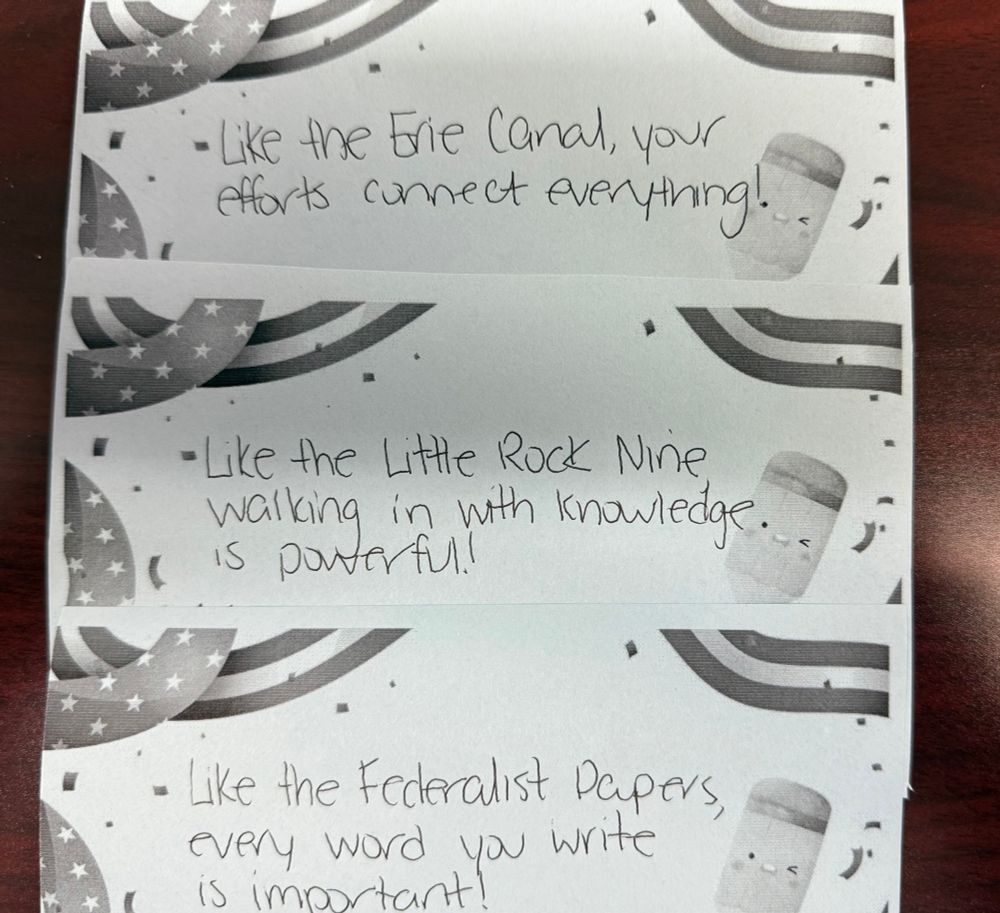 - Like the Erie Canal, your
efforts connect everything!
- Like the Little Rock Nine,
walking in with knowledge
is powerful!
- Like the Federalist Papers,
every word you write
is important!